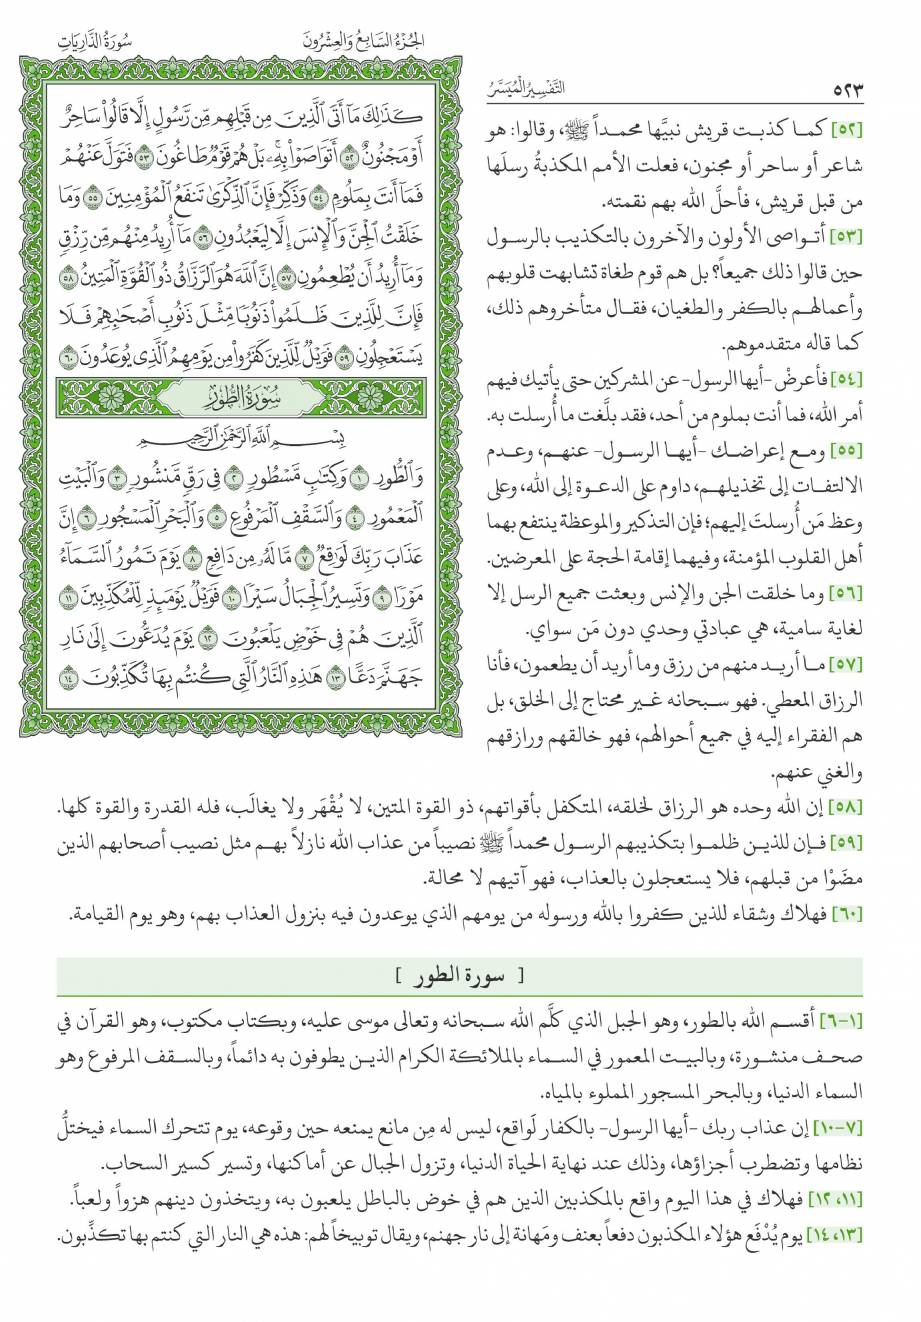 سُورَةُ الذَّارِيَاتِ
الجُزْءُ السَّابِعُ وَالعِشْرُونَ
كَذَٰلِكَ مَآ أَتَى ٱلَّذِينَ مِن قَبْلِهِم مِّن رَّسُولٍ إِلَّا قَالُوا۟ سَاحِرٌ
أَوْ مَجْنُونٌ ۝٥٢ أَتَوَاصَوْا۟ بِهِۦ ۚ بَلْ هُمْ قَوْمٌ طَاغُونَ ۝٥٣ فَتَوَلَّ عَنْهُمْ
فَمَآ أَنتَ بِمَلُومٍ ۝٥٤ وَذَكِّرْ فَإِنَّ ٱلذِّكْرَىٰ تَنفَعُ ٱلْمُؤْمِنِينَ ۝٥٥ وَمَا
خَلَقْتُ ٱلْجِنَّ وَٱلْإِنسَ إِلَّا لِيَعْبُدُونِ ۝٥٦ مَآ أُرِيدُ مِنْهُم مِّن رِّزْقٍ
وَمَآ أُرِيدُ أَن يُطْعِمُونِ ۝٥٧ إِنَّ ٱللَّهَ هُوَ ٱلرَّزَّاقُ ذُو ٱلْقُوَّةِ ٱلْمَتِينُ ۝٥٨
فَإِنَّ لِلَّذِينَ ظَلَمُوا۟ ذَنُوبًا مِّثْلَ ذَنُوبِ أَصْحَٰبِهِمْ فَلَا
يَسْتَعْجِلُونِ ۝٥٩ فَوَيْلٌ لِّلَّذِينَ كَفَرُوا۟ مِن يَوْمِهِمُ ٱلَّذِى يُوعَدُونَ ۝٦٠
سُورَةُ الطُّورِ
بِسْمِ ٱللَّهِ ٱلرَّحْمَٰنِ ٱلرَّحِيمِ
وَٱلطُّورِ ۝١ وَكِتَٰبٍ مَّسْطُورٍ ۝٢ فِى رَقٍّ مَّنشُورٍ ۝٣ وَٱلْبَيْتِ
ٱلْمَعْمُورِ ۝٤ وَٱلسَّقْفِ ٱلْمَرْفُوعِ ۝٥ وَٱلْبَحْرِ ٱلْمَسْجُورِ ۝٦ إِنَّ
عَذَابَ رَبِّكَ لَوَٰقِعٌ ۝٧ مَّا لَهُۥ مِن دَافِعٍ ۝٨ يَوْمَ تَمُورُ ٱلسَّمَآءُ
مَوْرًا ۝٩ وَتَسِيرُ ٱلْجِبَالُ سَيْرًا ۝١٠ فَوَيْلٌ يَوْمَئِذٍ لِّلْمُكَذِّبِينَ ۝١١
ٱلَّذِينَ هُمْ فِى خَوْضٍ يَلْعَبُونَ ۝١٢ يَوْمَ يُدَعُّونَ إِلَىٰ نَارِ
جَهَنَّمَ دَعًّا ۝١٣ هَٰذِهِ ٱلنَّارُ ٱلَّتِى كُنتُم بِهَا تُكَذِّبُونَ ۝١٤
٥٢٣
التَّفْسِيرُ الْمُيَسَّرُ
[٥٢] كما كذبت قريش نبيَّها محمداً ﷺ، وقالوا: هو
شاعر أو ساحر أو مجنون، فعلت الأمم المكذبةُ رسلَها
من قبل قريش، فأحلَّ الله بهم نقمته.
[٥٣] أتواصى الأولون والآخرون بالتكذيب بالرسول
حين قالوا ذلك جميعاً؟ بل هم قوم طغاة تشابهت قلوبهم
وأعمالهم بالكفر والطغيان، فقال متأخروهم ذلك،
كما قاله متقدموهم.
[٥٤] فأعرضْ -أيها الرسول- عن المشركين حتى يأتيك فيهم
أمر الله، فما أنت بملوم من أحد، فقد بلَّغت ما أُرسلت به.
[٥٥] ومع إعراضك -أيها الرسول- عنهم، وعدم
الالتفات إلى تخذيلهم، داوم على الدعوة إلى الله، وعلى
وعظ مَن أُرسلتَ إليهم؛ فإن التذكير والموعظة ينتفع بهما
أهل القلوب المؤمنة، وفيهما إقامة الحجة على المعرضين.
[٥٦] وما خلقت الجن والإنس وبعثت جميع الرسل إلا
لغاية سامية، هي عبادتي وحدي دون مَن سواي.
[٥٧] ما أريد منهم من رزق وما أريد أن يطعمون، فأنا
الرزاق المعطي. فهو سبحانه غير محتاج إلى الخلق، بل
هم الفقراء إليه في جميع أحوالهم، فهو خالقهم ورازقهم
والغني عنهم.
[٥٨] إن الله وحده هو الرزاق لخلقه، المتكفل بأقواتهم، ذو القوة المتين، لا يُقْهَر ولا يغالَب، فله القدرة والقوة كلها.
[٥٩] فإن للذين ظلموا بتكذيبهم الرسول محمداً ﷺ نصيباً من عذاب الله نازلاً بهم مثل نصيب أصحابهم الذين
مضَوْا من قبلهم، فلا يستعجلون بالعذاب، فهو آتيهم لا محالة.
[٦٠] فهلاك وشقاء للذين كفروا بالله ورسوله من يومهم الذي يوعدون فيه بنزول العذاب بهم، وهو يوم القيامة.
[ سورة الطور ]
[١-٦] أقسم الله بالطور، وهو الجبل الذي كلَّم الله سبحانه وتعالى موسى عليه، وبكتاب مكتوب، وهو القرآن في
صحف منشورة، وبالبيت المعمور في السماء بالملائكة الكرام الذين يطوفون به دائماً، وبالسقف المرفوع وهو
السماء الدنيا، وبالبحر المسجور المملوء بالمياه.
[٧-١٠] إن عذاب ربك -أيها الرسول- بالكفار لَواقع، ليس له مِن مانع يمنعه حين وقوعه، يوم تتحرك السماء فيختلُّ
نظامها وتضطرب أجزاؤها، وذلك عند نهاية الحياة الدنيا، وتزول الجبال عن أماكنها، وتسير كسير السحاب.
[١١، ١٢] فهلاك في هذا اليوم واقع بالمكذبين الذين هم في خوض بالباطل يلعبون به، ويتخذون دينهم هزواً ولعباً.
[١٣، ١٤] يوم يُدْفَع هؤلاء المكذبون دفعاً بعنف ومَهانة إلى نار جهنم، ويقال توبيخاً لهم: هذه هي النار التي كنتم بها تكذِّبون.